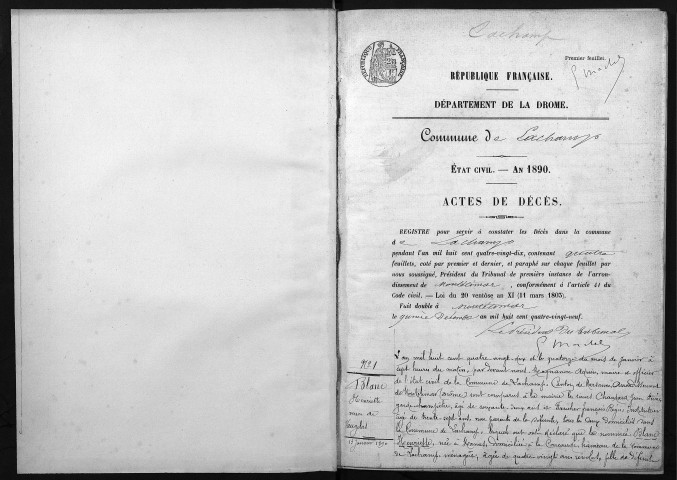 Lachamp
Premier feuillet.
RÉPUBLIQUE FRANÇAISE.
DÉPARTEMENT DE LA DROME.
Commune de Lachamp
ÉTAT CIVIL. — AN 1890.
ACTES DE DÉCÈS.
REGISTRE pour servir à constater les Décès dans la commune
de Lachamp
pendant l'an mil huit cent quatre-vingt-dix, contenant quatre
feuillets, coté par premier et dernier, et paraphé sur chaque feuillet par
nous soussigné, Président du Tribunal de première instance de l'arron-
dissement de Montélimar, conformément à l'article 41 du
Code civil. — Loi du 20 ventôse an XI (11 mars 1803).
Fait double à Montélimar
le quinze Décembre an mil huit cent quatre-vingt-neuf.
Le Président du Tribunal
N° 1
Blanc
Henriette
14 janvier 1890
L'an mil huit cent quatre-vingt-dix et le quatorze du mois de janvier à
sept heures du matin, par devant nous maire et officier
de l'état civil de la Commune de Lachamp, Canton de Marsanne, Arrondissement
de Montélimar Drôme sont comparus à la mairie les sieurs Jean
garde champêtre, âgé de deux ans et François
âgé de trente sept ans, non parents de la défunte, tous les deux domiciliés dans
la Commune de Lachamp. Lesquels nous ont déclaré que la nommée Blanc
Henriette, née à domiciliée à hameau de la Commune
de Lachamp ménagère, âgée de quatre vingt ans révolus, fille de défunt